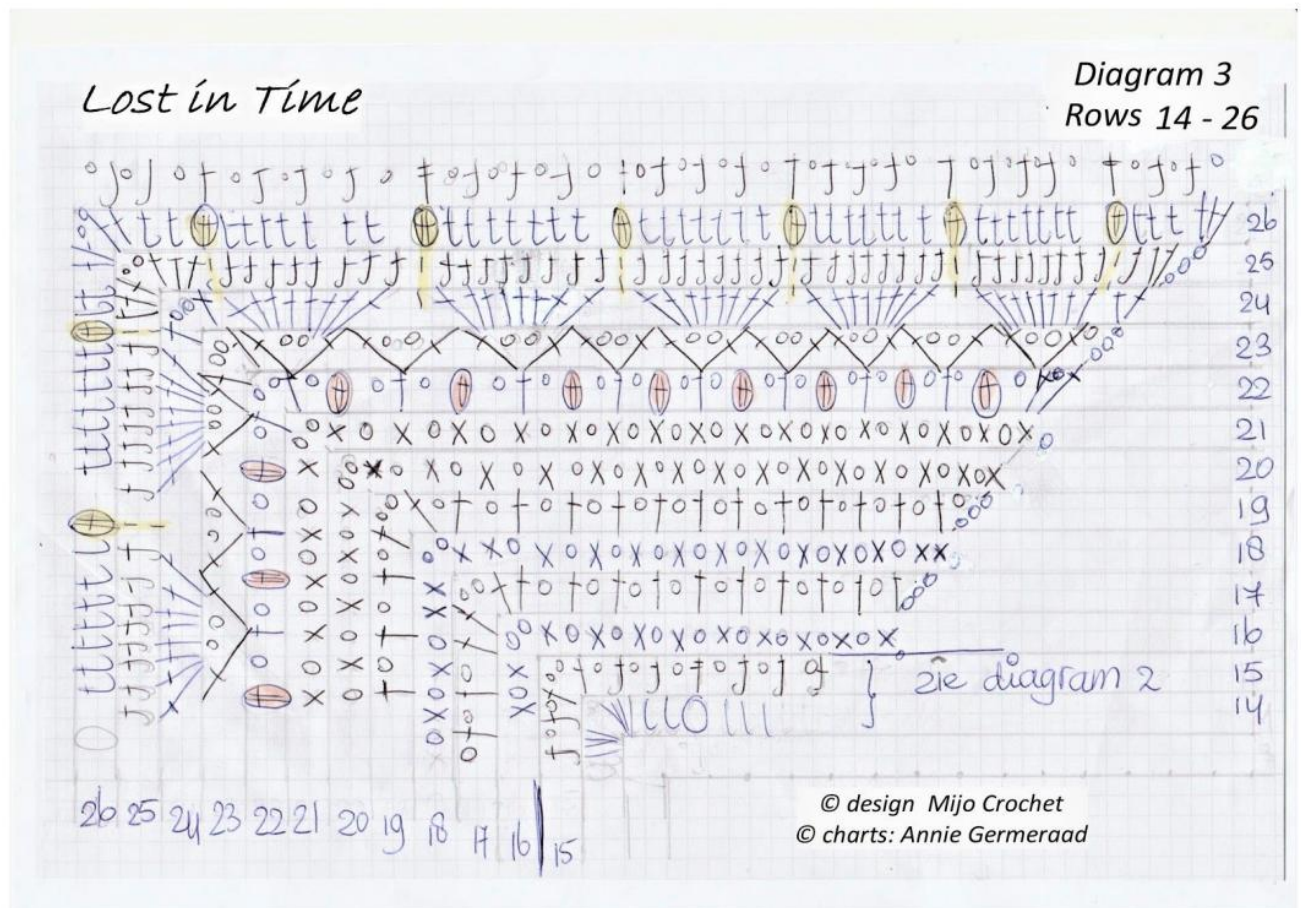 Lost in Time
Diagram 3
Rows 14 - 26
26
25
24
23
22
21
20
19
18
17
16
15
14
zie diagram 2
26 25 24 23 22 21 20 19 18 17 16 15
© design Mijo Crochet
© charts: Annie Germeraad